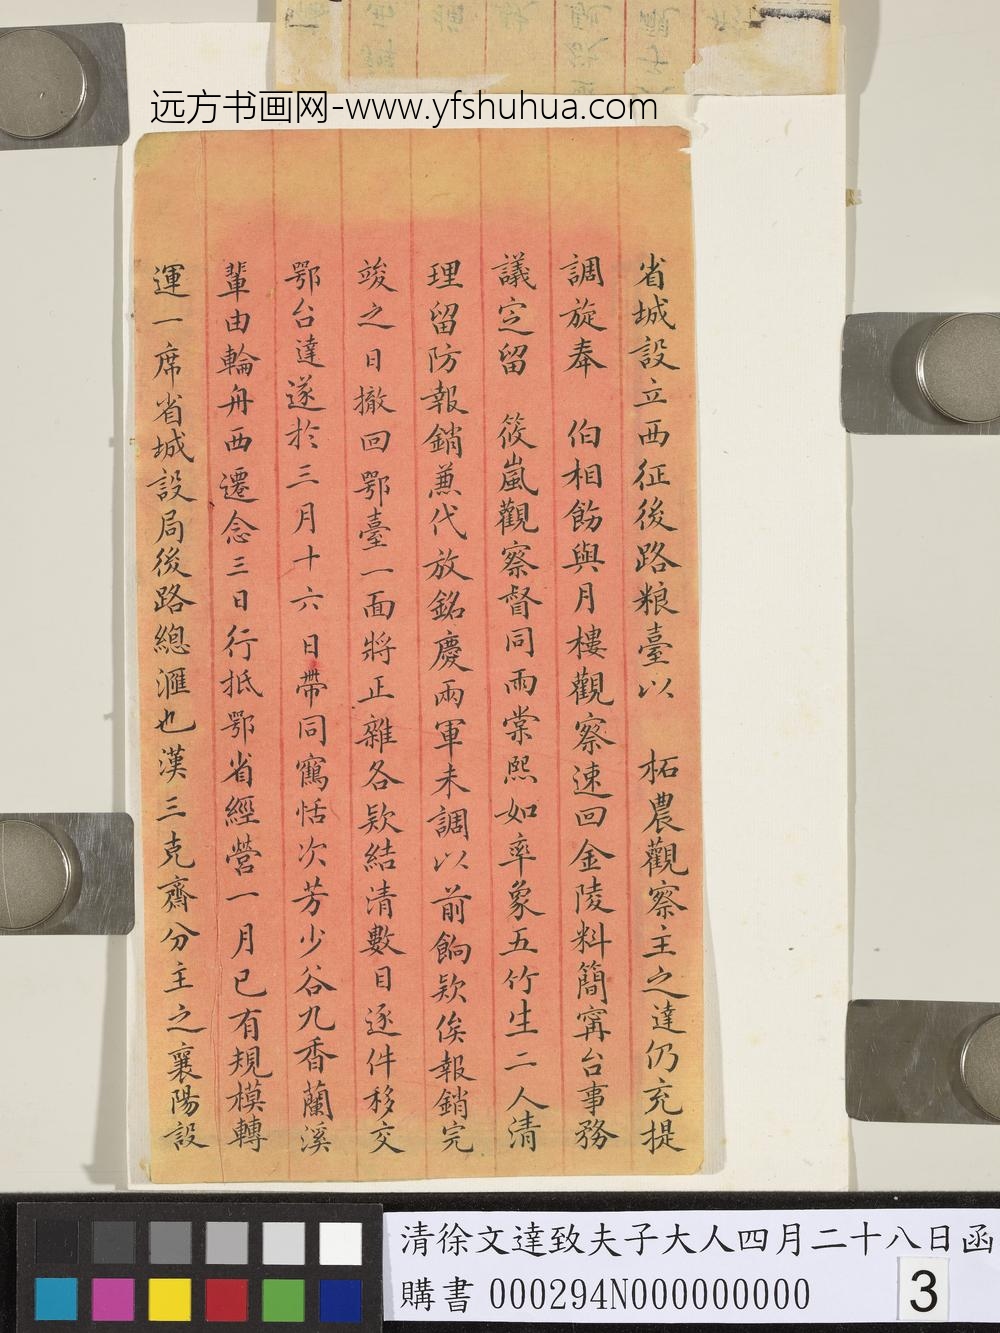 远方书画网-www.yfshuhua.com
省城設立西征後路粮臺以　柘農觀察主之達仍充提
調旋奉　伯相飭與月樓觀察速回金陵料簡甯台事務
議定留　筱嵐觀察督同雨棠熙如率象五竹生二人清
理留防報銷兼代放銘慶兩軍未調以前餉欵俟報銷完
竣之日撤回鄂臺一面將正雜各欵結清數目逐件移交
鄂台達遂於三月十六日帶同寫恬次芳少谷九香蘭溪
輩由輪舟西遷念三日行抵鄂省經營一月已有規模轉
運一席省城設局後路總滙也漢三克齋分主之襄陽設
清徐文達致夫子大人四月二十八日函
購書 000294N000000000
3